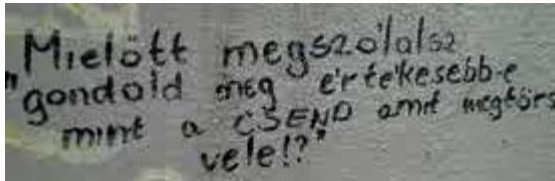 Mielőtt megszólalsz
"gondold meg értékesebb-e
mint a CSEND amit megtörsz
vele!?"